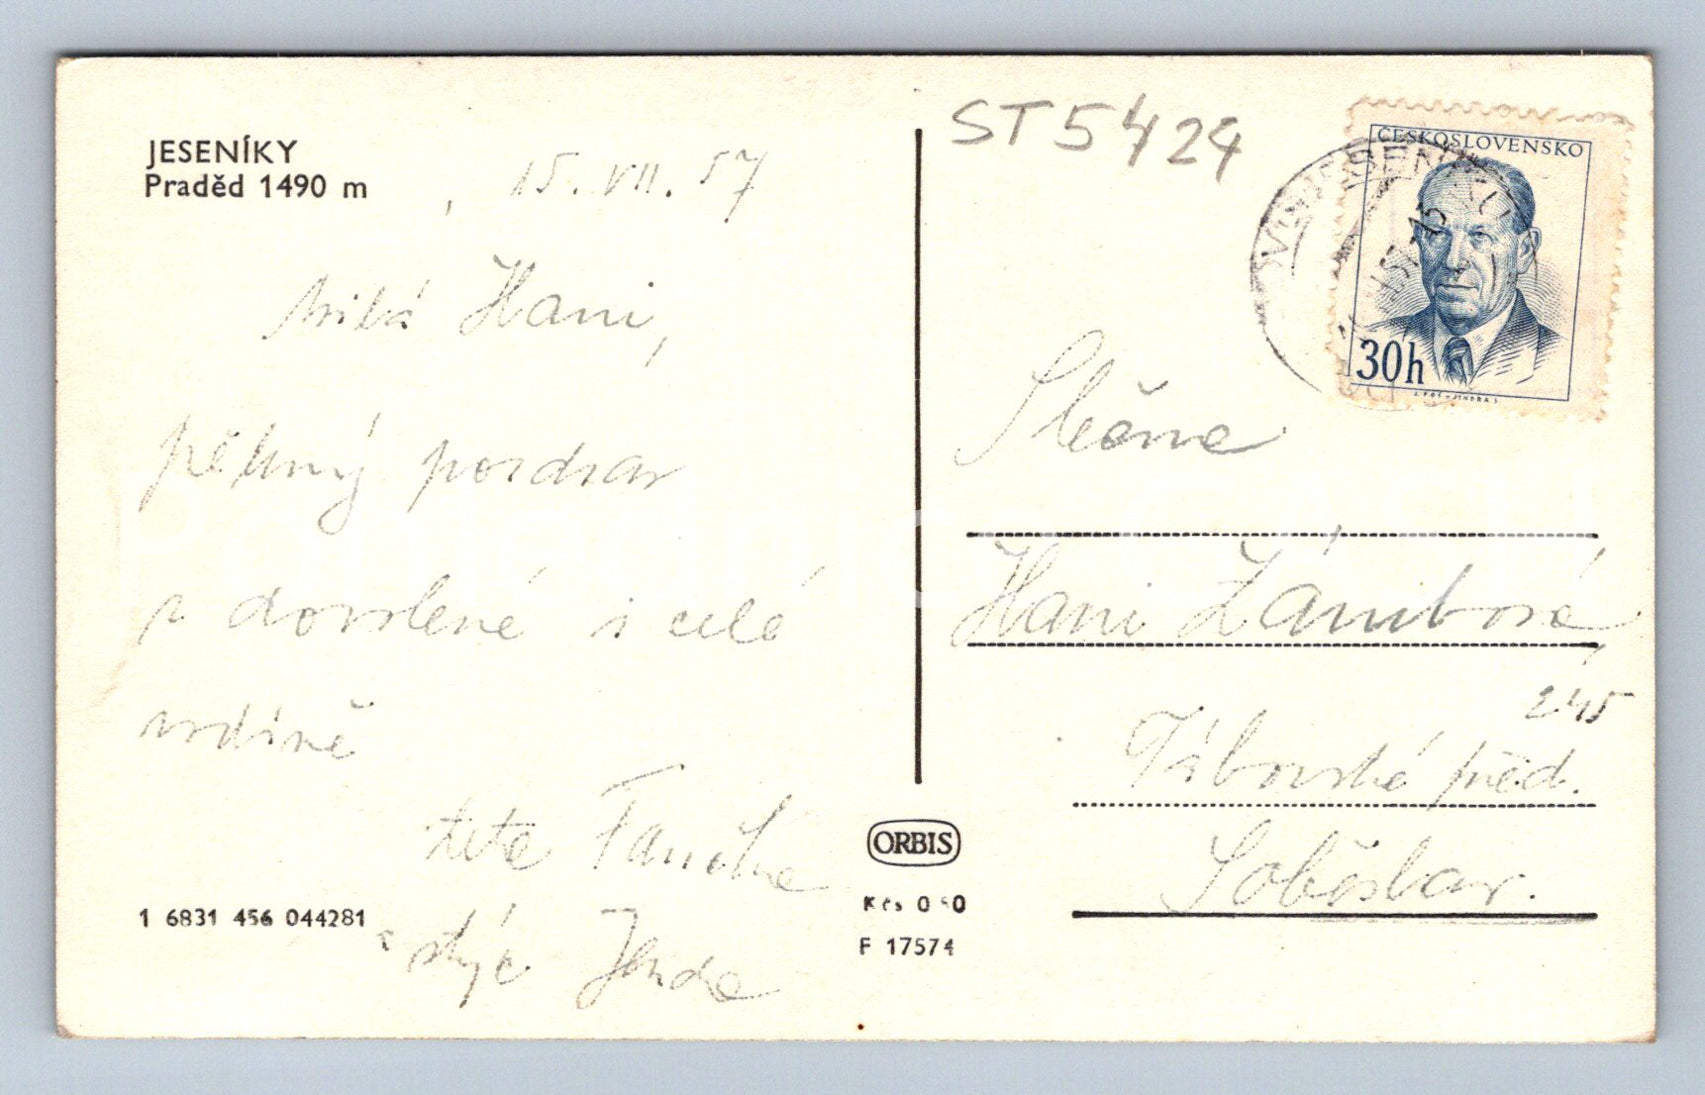 JESENÍKY
Praděd 1490 m
15. VII. 57
Milá Hani,
pěkný pozdrav
z dovolené i celé
rodině
teta Fančka
a strýc Jenda
1 6831 456 044281
ST 5424
ČESKOSLOVENSKO
30h
Slečna
Hani
245
Táborské před.
Soběslav.
ORBIS
Kčs 0
F 17574